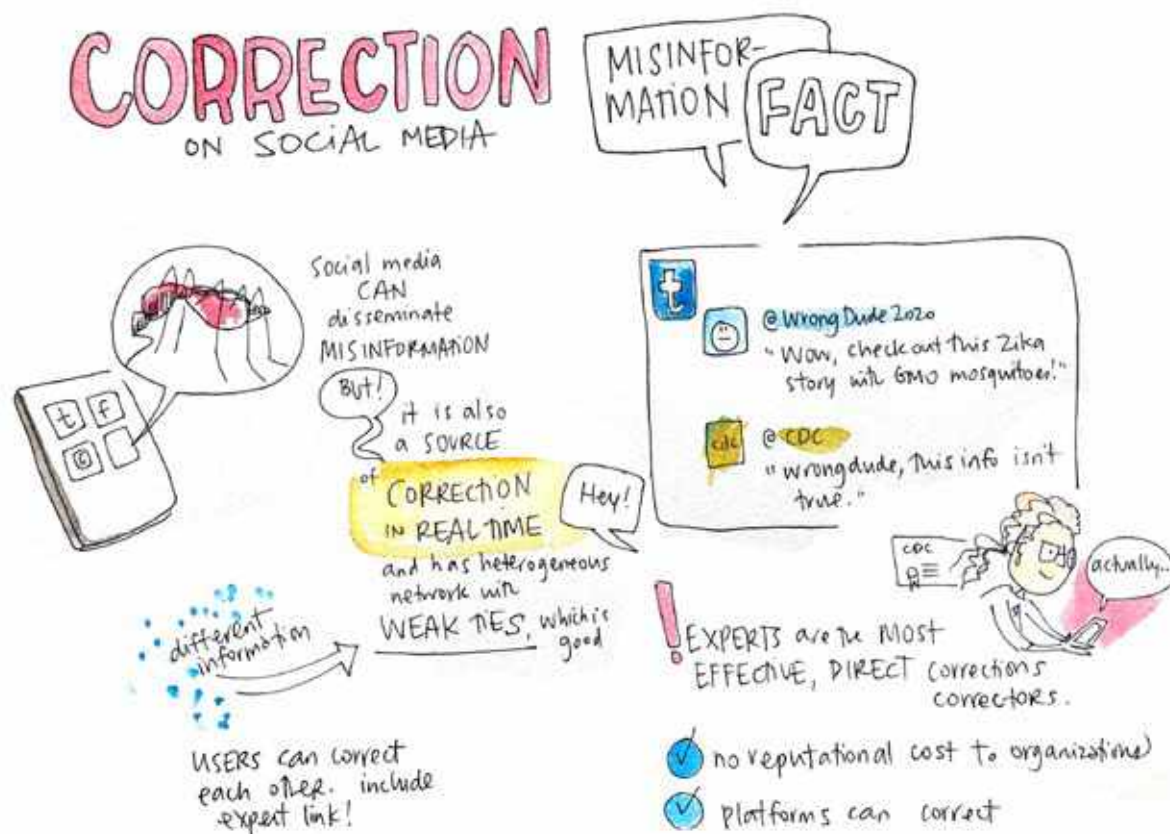 CORRECTION
ON SOCIAL MEDIA
MISINFOR-
MATION
FACT
Social media
CAN
disseminate
MISINFORMATION
But!
it is also
a SOURCE
of
CORRECTION
IN REAL TIME
Hey!
and has heterogeneous
network with
WEAK TIES, which is
good
t f
different
information
USERS can correct
each other. include
expert link!
t
@WrongDude2020
"Wow, check out this Zika
story with GMO mosquitoes!"
cdc
@CDC
"wrongdude, this info isn't
true."
CDC
actually...
! EXPERTS are the MOST
EFFECTIVE, DIRECT corrections
correctors.
no reputational cost to organizations)
platforms can correct